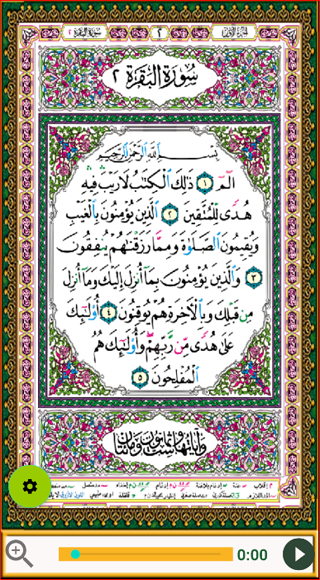 سورة البقرة ٢
٢
الجزء الاول
سُورَةُ البَقَرَةِ ٢
بِسْمِ اللَّهِ الرَّحْمَٰنِ الرَّحِيمِ
الٓمٓ ١ ذَٰلِكَ الْكِتَٰبُ لَا رَيْبَ فِيهِ
هُدًى لِّلْمُتَّقِينَ ٢ الَّذِينَ يُؤْمِنُونَ بِالْغَيْبِ
وَيُقِيمُونَ الصَّلَوٰةَ وَمِمَّا رَزَقْنَٰهُمْ يُنفِقُونَ
٣ وَالَّذِينَ يُؤْمِنُونَ بِمَا أُنزِلَ إِلَيْكَ وَمَا أُنزِلَ
مِن قَبْلِكَ وَبِالْآخِرَةِ هُمْ يُوقِنُونَ ٤ أُولَٰئِكَ
عَلَىٰ هُدًى مِّن رَّبِّهِمْ وَأُولَٰئِكَ هُمُ
الْمُفْلِحُونَ ٥
0:00